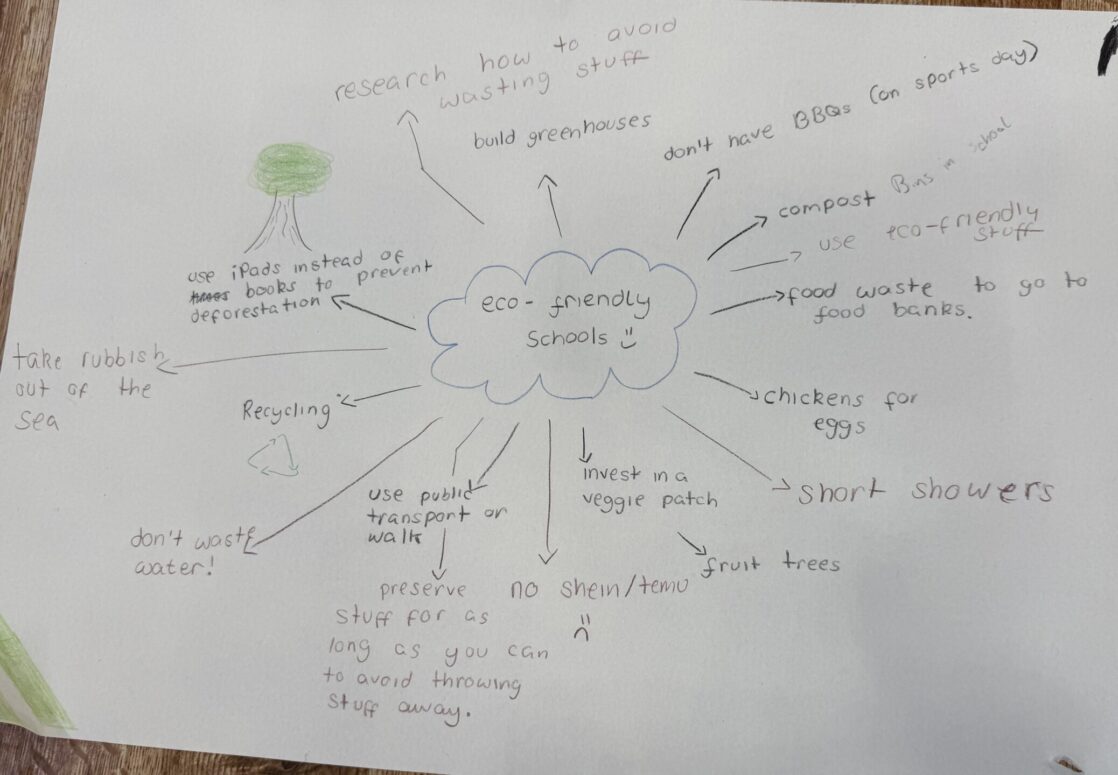 research how to avoid
wasting stuff
build greenhouses
don't have BBQs (on sports day)
compost Bins in school
use eco-friendly
stuff
food waste to go to
food banks.
eco-friendly
Schools
use iPads instead of
books to prevent
deforestation
take rubbish
out of the
sea
Recycling
chickens for
eggs
short showers
invest in a
veggie patch
fruit trees
use public
transport or
walk
don't waste
water!
preserve
stuff for as
long as you can
to avoid throwing
stuff away.
no shein/temu